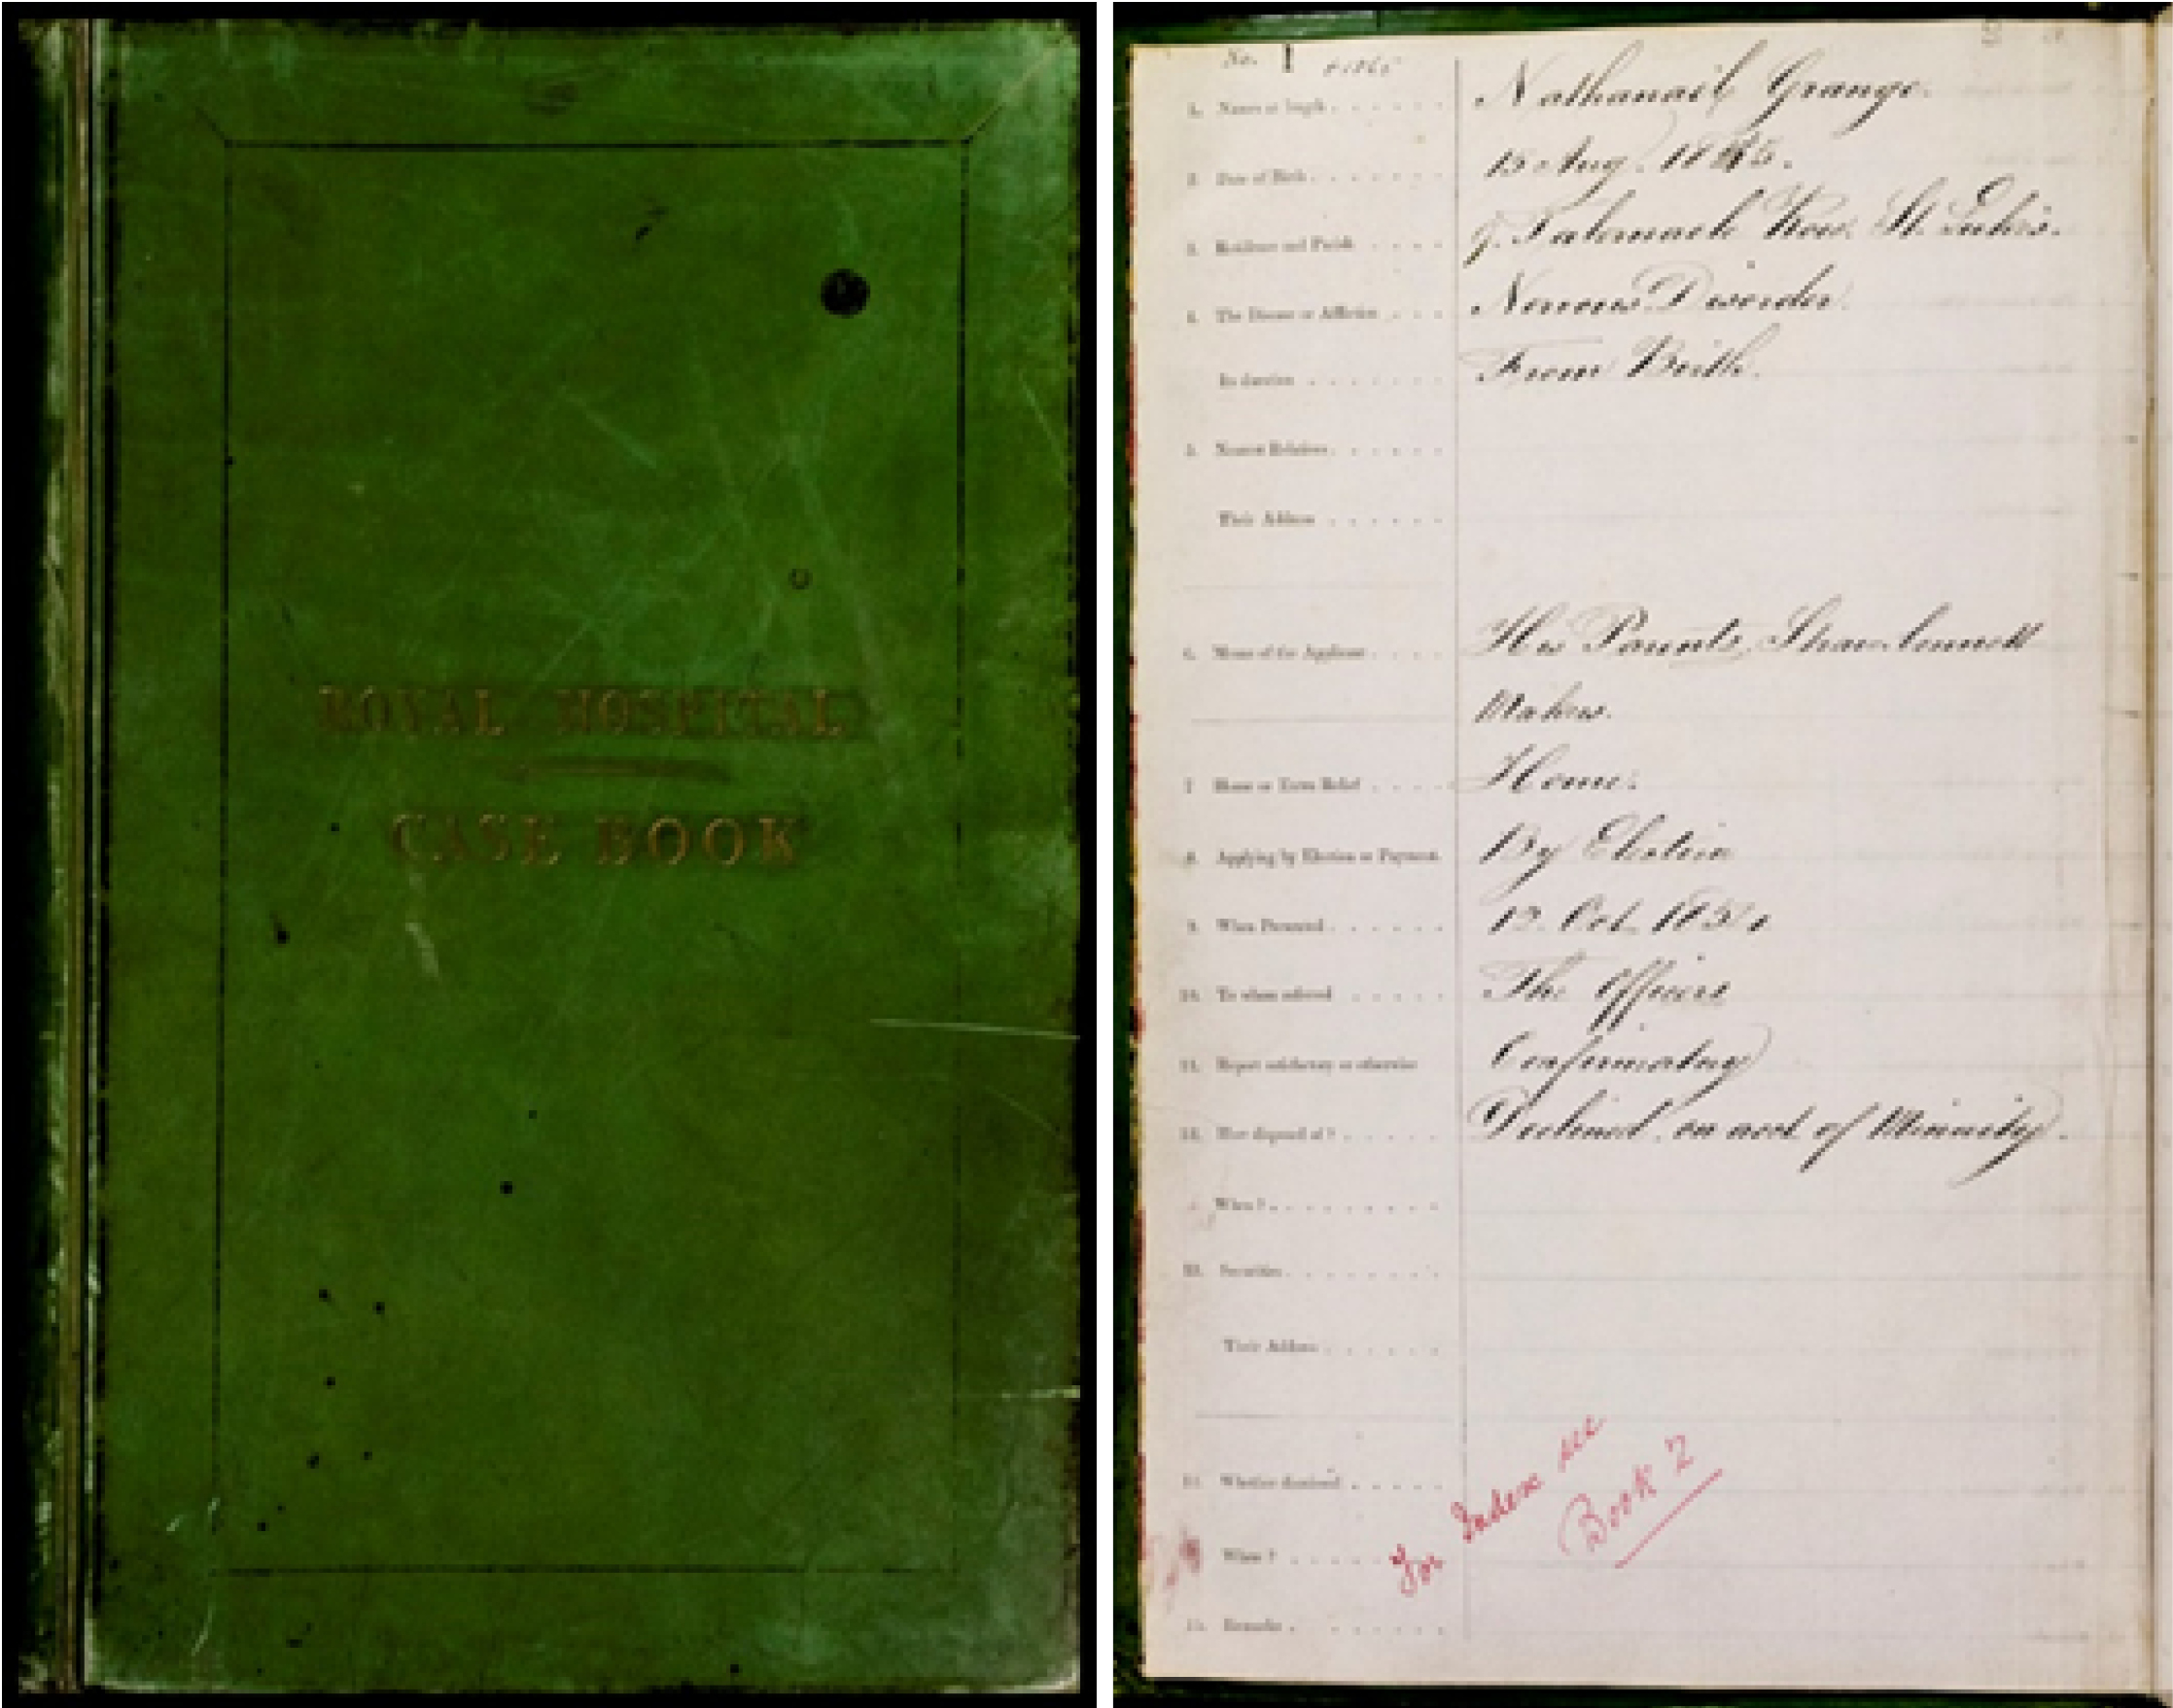 ROYAL HOSPITAL
CASE BOOK
No. 1
1. Name at length Nathanail Grange.
2. Date of Birth 15 Aug. 18
3. Residence and Parish 7. Tabernacle Row. St. Luke's.
4. The Disease or Affliction Nervous Disorder.
Its duration From Birth.
5. Nearest Relatives
Their Address
6. Means of the Applicant His Parents, Straw bonnett
Makers.
7. Home or Extra Relief Home.
8. Applying by Election or Payment By Election
9. When Presented 12. Oct. 
10. To whom referred The Officers
11. Report satisfactory or otherwise Confirmatory
12. How disposed of? Declined, on acct. of Minority.
When?
13. Securities
Their Address
14. Whether dismissed
When?
15. Remarks
For Index see
Book 2